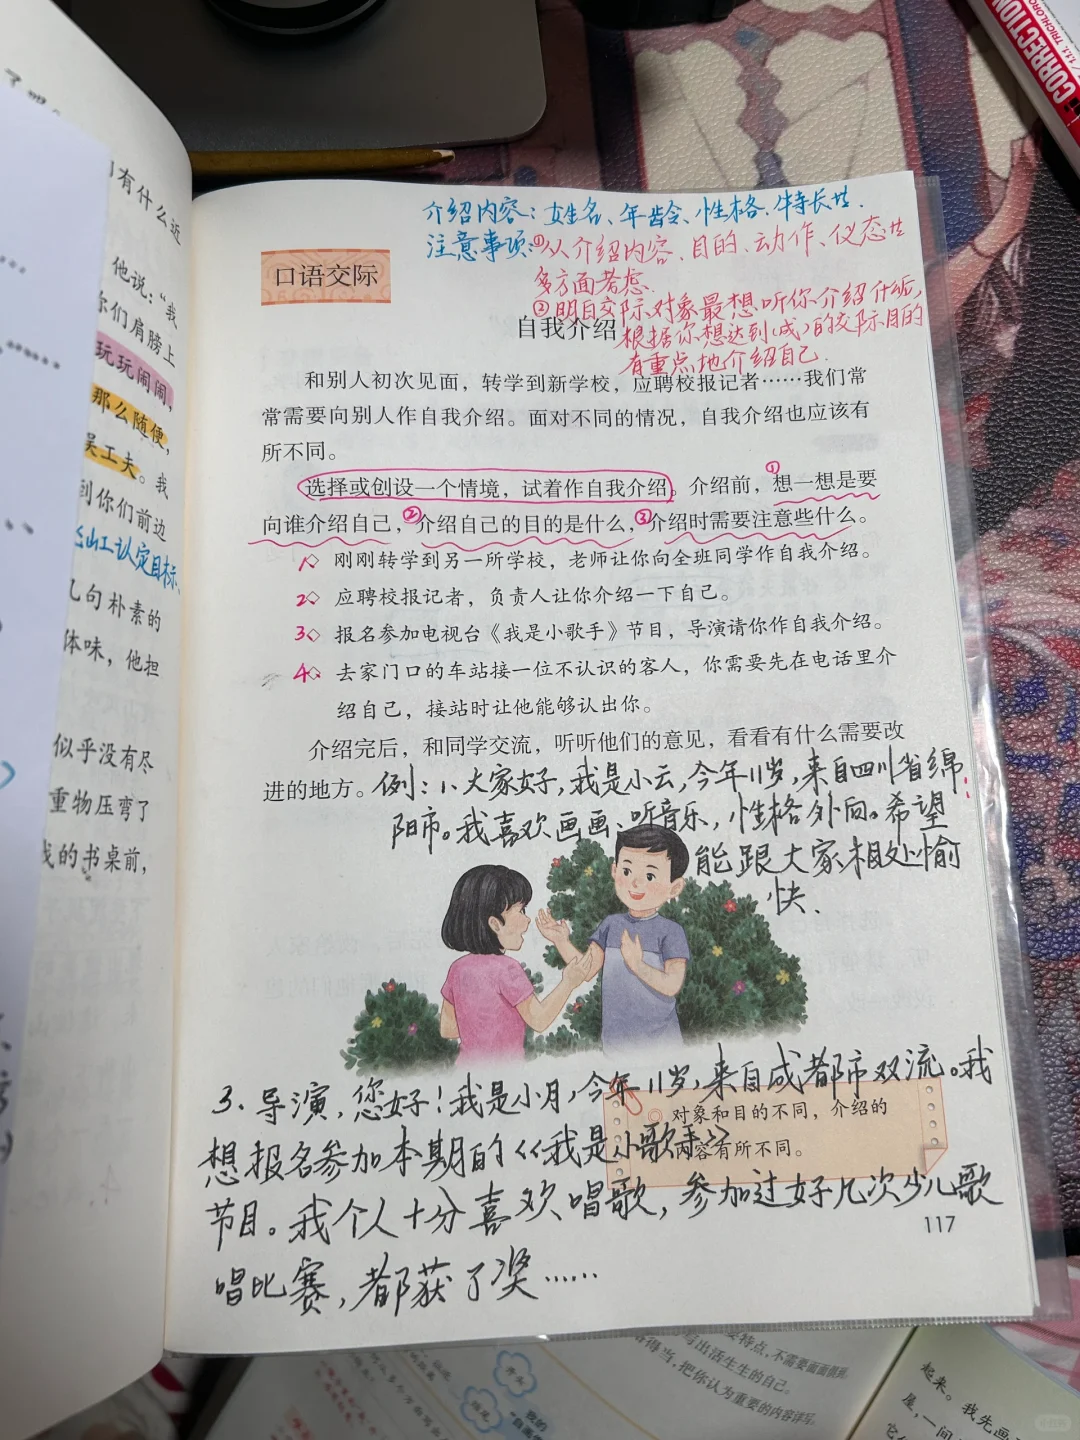 CORRECTION
有什么近
他说：“我
你们肩膀上
玩玩闹闹，
那么随便，
吴工夫。我
到你们前边
认定目标
几句朴素的
体味，他担
似乎没有尽
重物压弯了
我的书桌前，
介绍内容：姓名、年龄、性格、特长等.
注意事项：①从介绍内容、目的、动作、仪态等
多方面考虑.
②明白交际对象最想听你介绍什么，
根据你想达到(成)的交际目的
有重点地介绍自己.
口语交际
自我介绍
和别人初次见面，转学到新学校，应聘校报记者……我们常
常需要向别人作自我介绍。面对不同的情况，自我介绍也应该有
所不同。
选择或创设一个情境，试着作自我介绍。介绍前，①想一想是要
向谁介绍自己，②介绍自己的目的是什么，③介绍时需要注意些什么。
1◇ 刚刚转学到另一所学校，老师让你向全班同学作自我介绍。
2◇ 应聘校报记者，负责人让你介绍一下自己。
3◇ 报名参加电视台《我是小歌手》节目，导演请你作自我介绍。
4◇ 去家门口的车站接一位不认识的客人，你需要先在电话里介
绍自己，接站时让他能够认出你。
介绍完后，和同学交流，听听他们的意见，看看有什么需要改
进的地方。例：1、大家好，我是小云，今年11岁，来自四川省绵
阳市。我喜欢画画、听音乐，性格外向。希望
能跟大家相处愉
快.
3.导演，您好！我是小月，今年11岁，来自成都市双流。我
对象和目的不同，介绍的
想报名参加本期的《我是小歌手》
内容有所不同。
节目。我个人十分喜欢唱歌，参加过好几次少儿歌
117
唱比赛，都获了奖……
特点，不需要面面俱到
写出活生生的自己。
得当，把你认为重要的内容详写。
起来。我先画
屋，一间